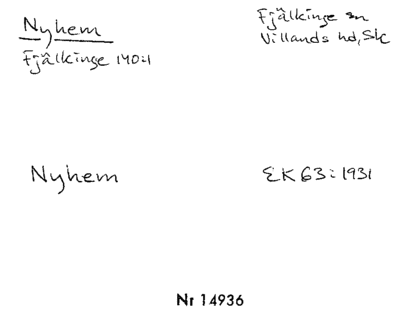 Nyhem
Fjälkinge 140:1
Fjälkinge sn
Villands hd, Sk
Nyhem
EK 63:1931
Nr 14936